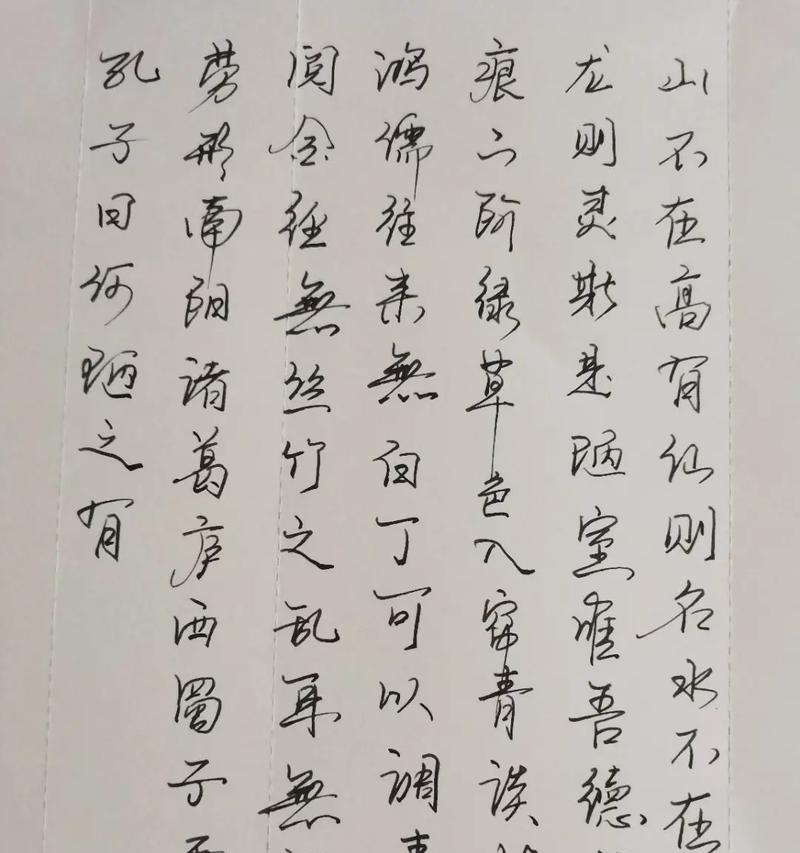 山不在高有仙则名水不在
龙则灵斯是陋室唯吾德
痕上阶绿草色入帘青谈
鸿儒往来無白丁可以调
阅金经無丝竹之乱耳無
劳形南阳诸葛庐西蜀子
孔子曰何陋之有